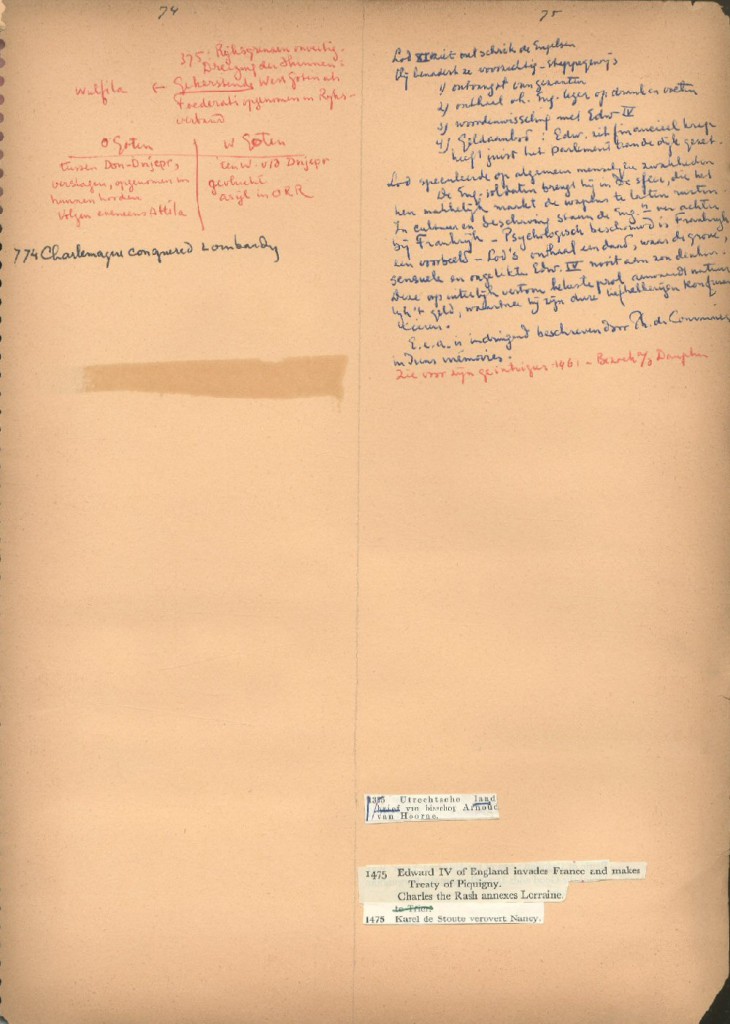 74
375: Rijksgrenzen onveilig.
Dreiging der Hunnen:
Wulfila ← Gekerstende West Goten als
Foederati opgenomen in Rijks-
verband
O Goten
W Goten
tussen Don-Dnjepr,
verslagen, opgenomen in
hunnen horden
volgen eveneens Attila
ten W. v/d Dnjepr
gevlucht
asyl in ORR
774 Charlemagne conquered Lombardy
75
Lod XI niet met schrik de Engelsen
Hij benadert ze voorzichtig - stapsgewijs
1) ontvangst van gezanten
2) onthaal v.h. Eng. leger op drank en vreten
3) woordenwisseling met Edw IV
4) Geldaanbod: Edw. zit financieel krap
heeft juist het Parlement aan de dijk gezet.
Lod speculeerde op algemeen menselijke zwakheden
De Eng. soldaten brengt hij in de sfeer, die het
hen makkelijk maakt de wapens te laten rusten.
In cultuur en beschaving staan de Eng. ver achter
bij Frankrijk - Psychologisch beschouwd is Frankrijk
een voorbeeld - Lod's onthaal een daad, waar de grove,
sensuele en ongelikte Edw. IV nooit aan zou denken.
Deze op uiterlijk vertoon beluste prof
't geld, waarmee hij zijn dure liefhebberijen kon finan
cieren.
E.e.a. is indringend beschreven door Ph. de Commines
in diens mémoires.
Zie voor zijn geïntrigeer 1461 - Bezoek a/d Dauphin
1375 Utrechtsche land
brief van bisschop Arnoud
van Hoorne.
1475 Edward IV of England invades France and makes
Treaty of Piquigny.
Charles the Rash annexes Lorraine.
te Trier
1475 Karel de Stoute verovert Nancy.